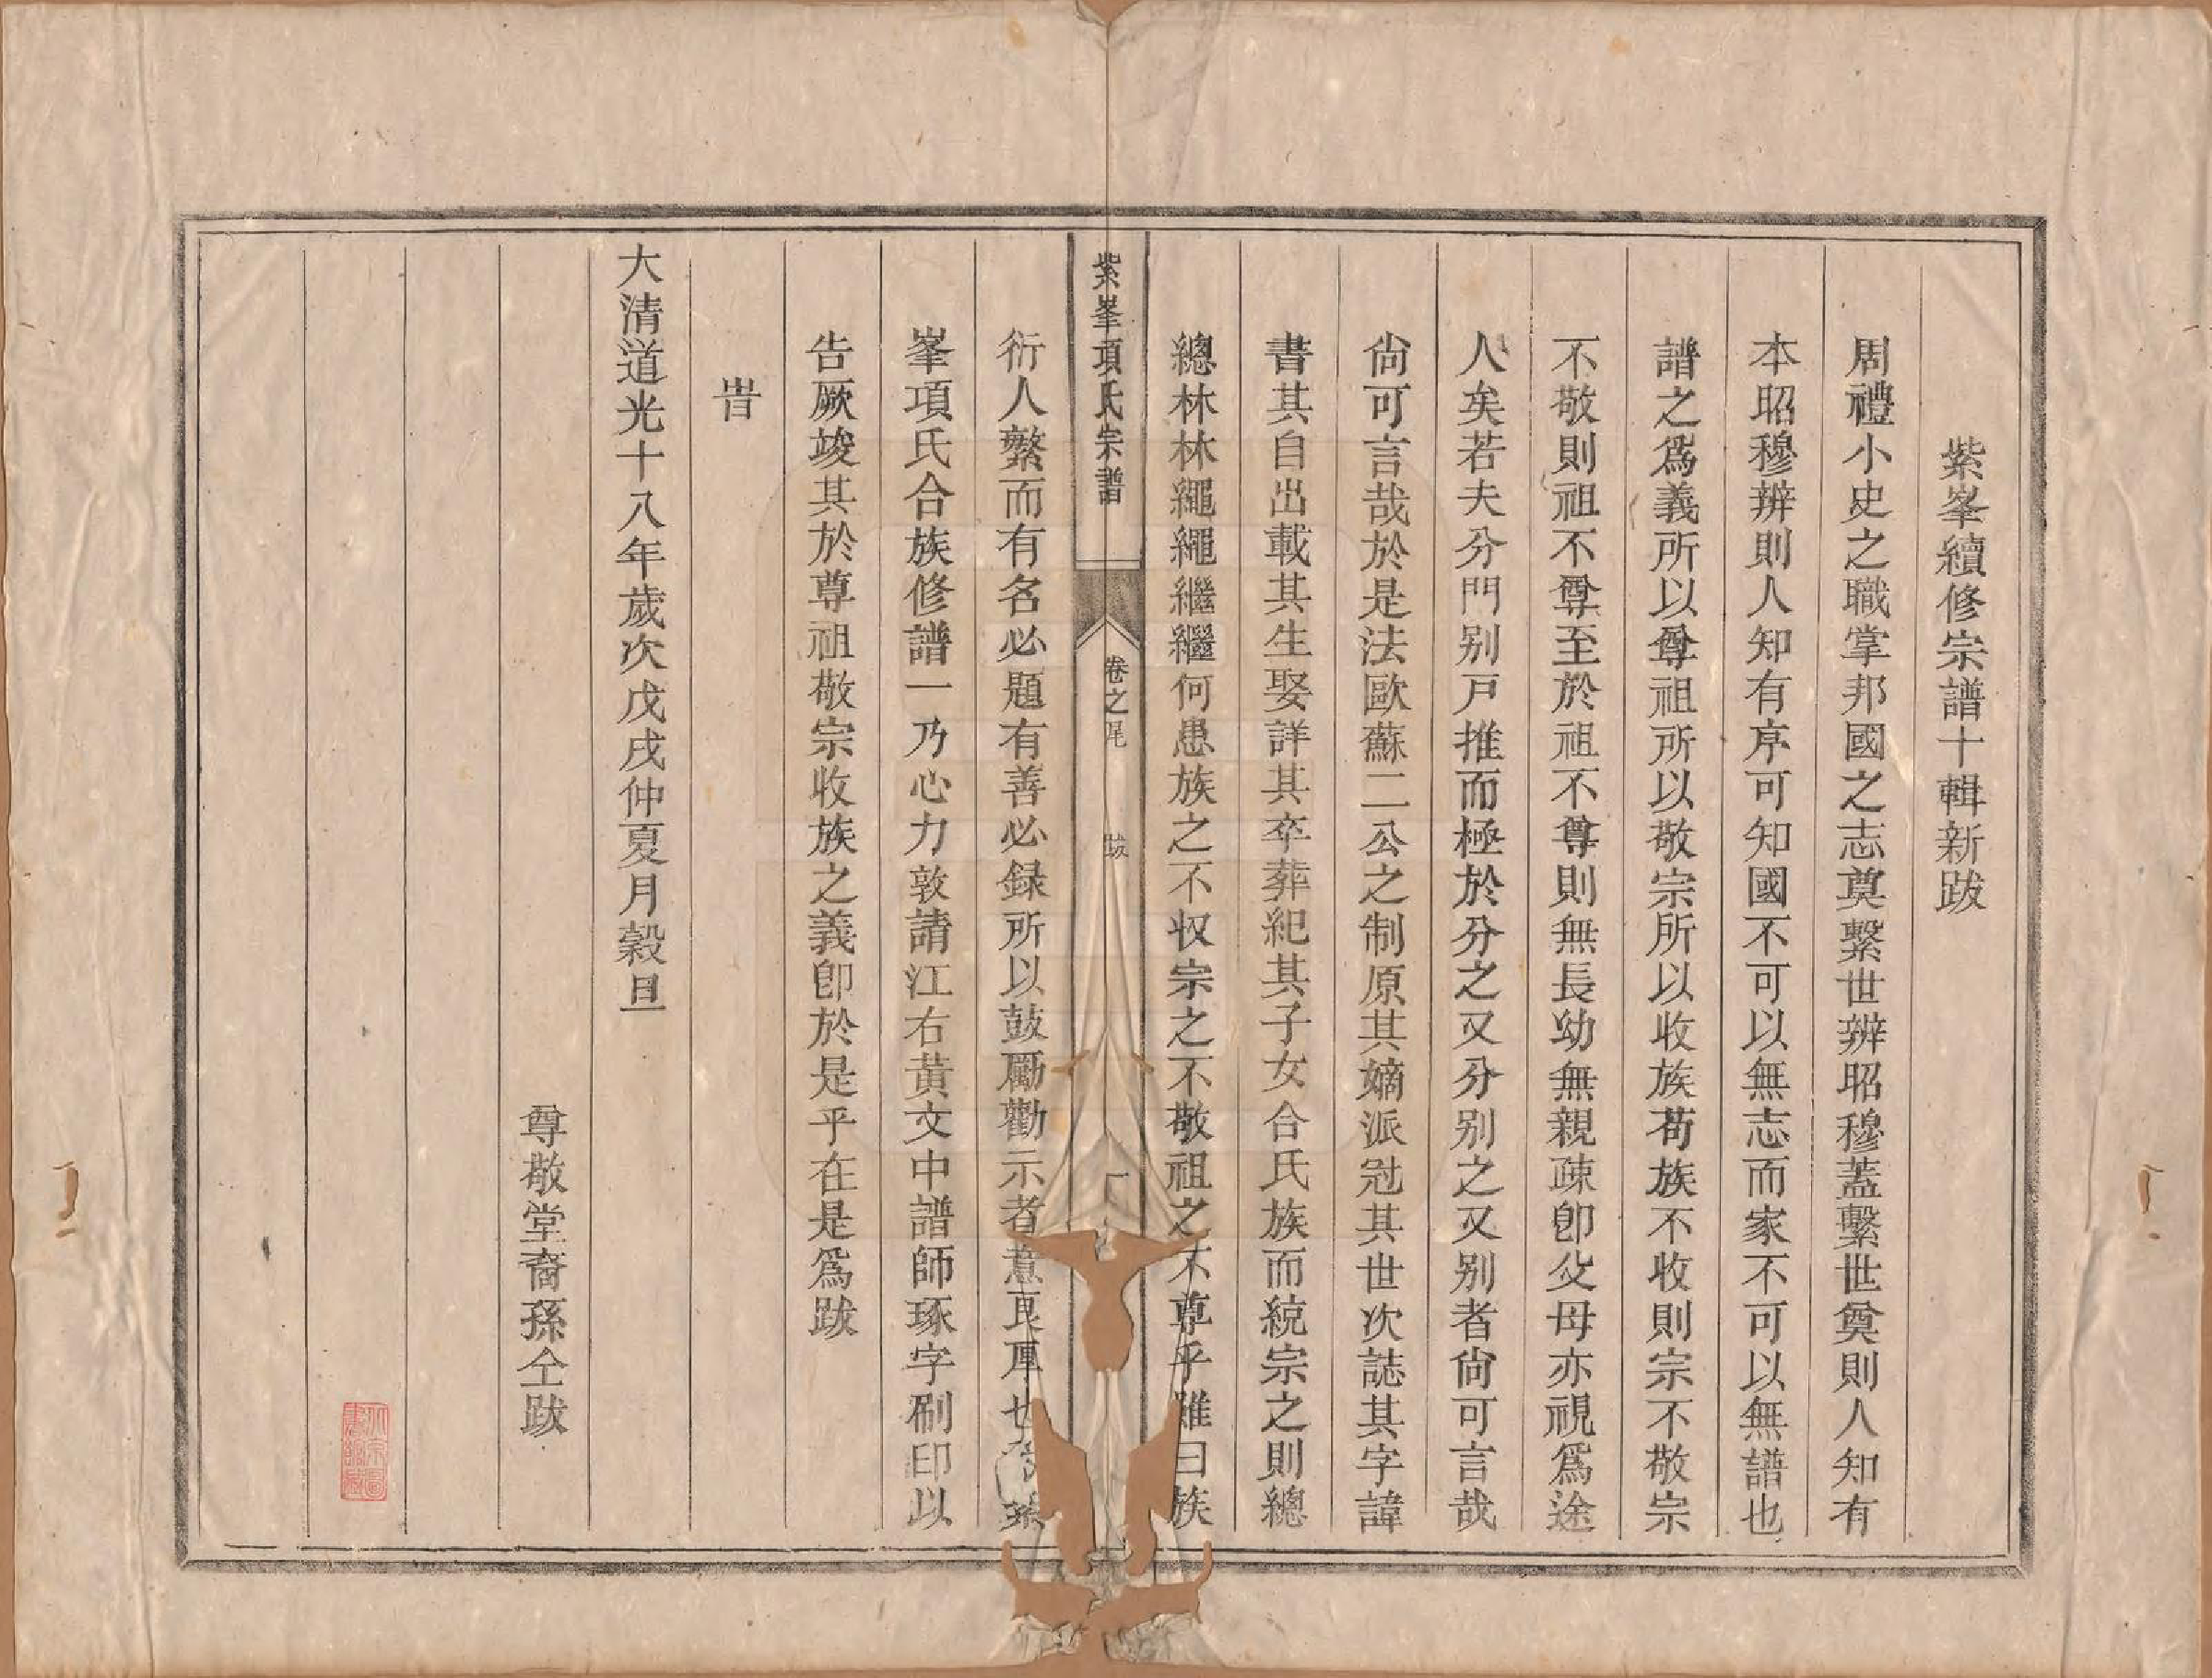 紫峯續修宗譜十輯新跋
周禮小史之職掌邦國之志奠繫世辨昭穆蓋繫世奠則人知有
本昭穆辨則人知有序可知國不可以無志而家不可以無譜也
譜之爲義所以尊祖所以敬宗所以收族苟族不收則宗不敬宗
不敬則祖不尊至於祖不尊則無長幼無親疎卽父母亦視爲途
人矣若夫分門别戸推而極於分之又分别之又别者尙可言哉
尙可言哉於是法歐蘇二公之制原其嫡派冠其世次誌其字諱
書其自出載其生娶詳其卒葬紀其子女合氏族而統宗之則總
總林林繩繩繼繼何患族之不収宗之不敬祖之不尊乎雖曰族
紫峯項氏宗譜
卷之尾
跋
衍人繁而有名必題有善必録所以鼓勵勸示者意良厚也
峯項氏合族修譜一乃心力敦請江右黃文中譜師琢字刷印以
告厥竣其於尊祖敬宗收族之義卽於是乎在是爲跋
旹
大清道光十八年歲次戊戌仲夏月穀旦
尊敬堂裔孫仝跋